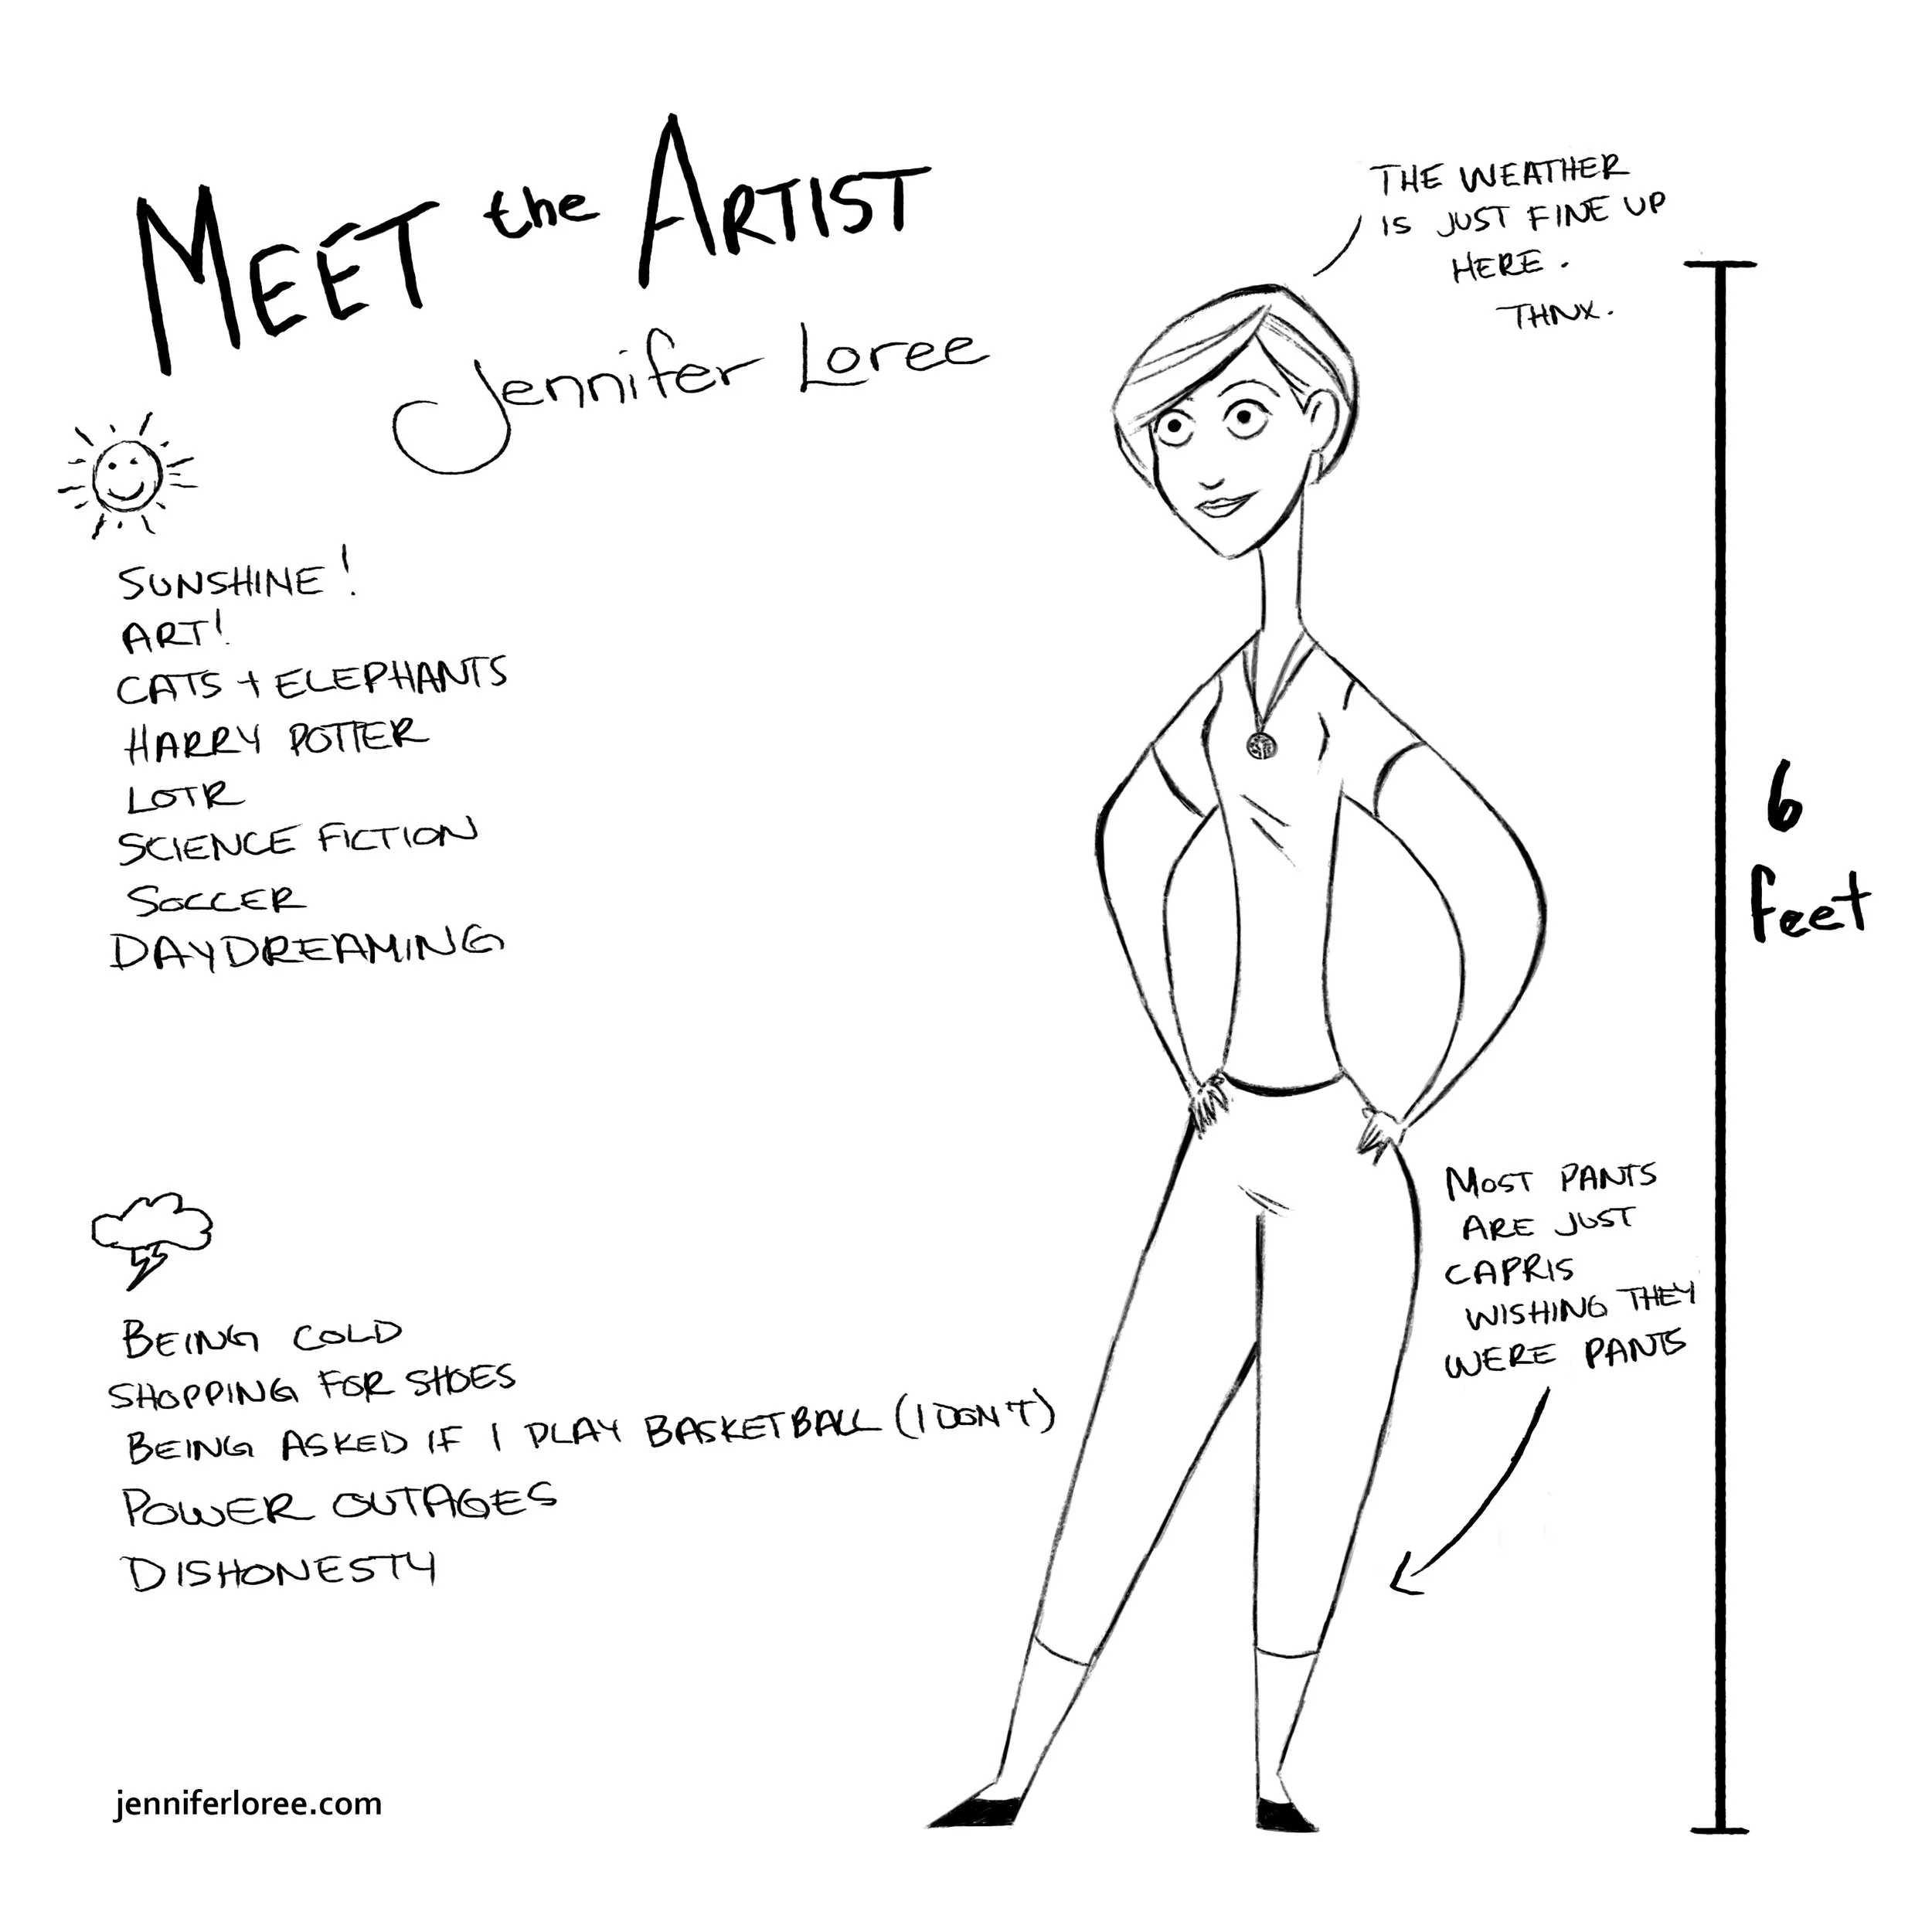 MEET the ARTIST
Jennifer Loree
THE WEATHER
IS JUST FINE UP
HERE.
THNX.
SUNSHINE!
ART!
CATS + ELEPHANTS
HARRY POTTER
LOTR
SCIENCE FICTION
SOCCER
DAYDREAMING
6
feet
BEING COLD
SHOPPING FOR SHOES
BEING ASKED IF I PLAY BASKETBALL (I DON'T)
POWER OUTAGES
DISHONESTY
MOST PANTS
ARE JUST
CAPRIS
WISHING THEY
WERE PANTS
jenniferloree.com